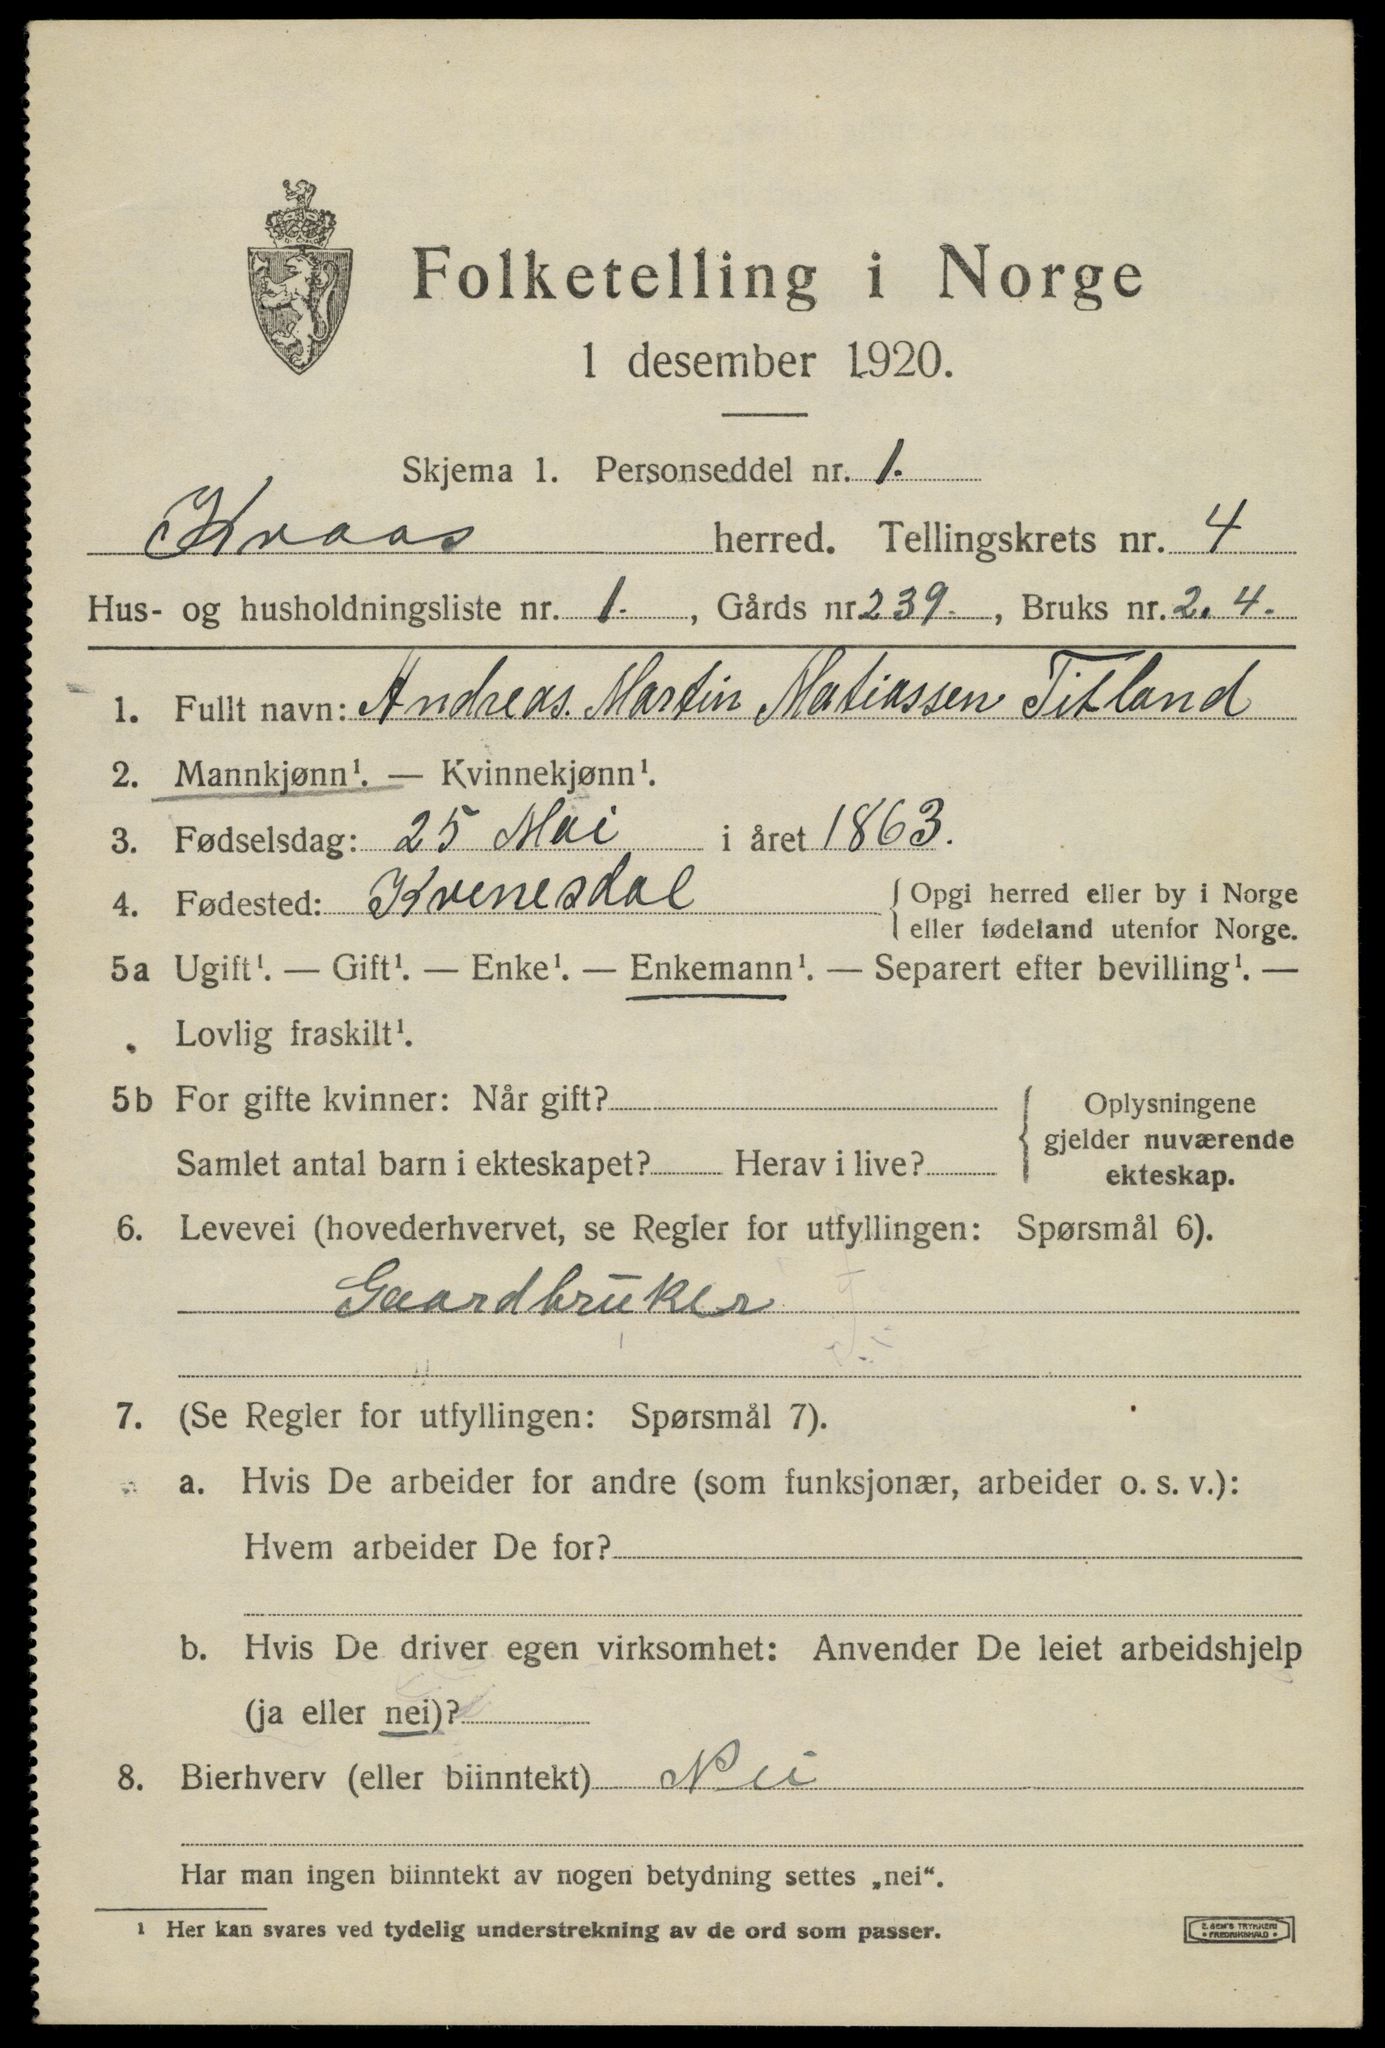 Folketelling i Norge
1 desember 1920.
Skjema 1. Personseddel nr. 1.
Kvaas herred. Tellingskrets nr. 4
Hus- og husholdningsliste nr. 1. , Gårds nr 239. , Bruks nr. 2. 4.
1. Fullt navn: Andreas. Martin Matiassen Titland
2. Mannkjønn¹. — Kvinnekjønn¹.
3. Fødselsdag: 25 Mai i året 1863.
4. Fødested: Kvenesdal { Opgi herred eller by i Norge
eller fødeland utenfor Norge.
5a Ugift¹. — Gift¹. — Enke¹. — Enkemann¹. — Separert efter bevilling¹. —
Lovlig fraskilt¹.
5b For gifte kvinner: Når gift? { Oplysningene
gjelder nuværende
Samlet antal barn i ekteskapet? Herav i live? ekteskap.
6. Levevei (hovederhvervet, se Regler for utfyllingen: Spørsmål 6).
Gaardbruker
7. (Se Regler for utfyllingen: Spørsmål 7).
a. Hvis De arbeider for andre (som funksjonær, arbeider o. s. v.):
Hvem arbeider De for?
b. Hvis De driver egen virksomhet: Anvender De leiet arbeidshjelp
(ja eller nei)?
8. Bierhverv (eller biinntekt) Nei
Har man ingen biinntekt av nogen betydning settes „nei“.
¹ Her kan svares ved tydelig understrekning av de ord som passer.
E. SEM'S TRYKKERI
• FREDRIKSHALD •